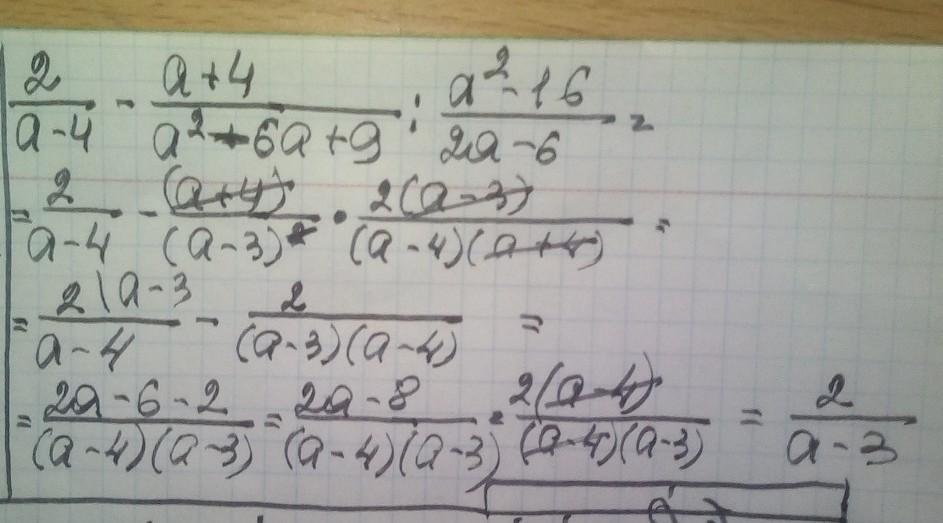 2/(a-4) - (a+4)/(a²-6a+9) : (a²-16)/(2a-6) =
= 2/(a-4) - (a+4)/(a-3)² · 2(a-3)/((a-4)(a+4)) =
= 2\a-3/(a-4) - 2/((a-3)(a-4)) =
= (2a-6-2)/((a-4)(a-3)) = (2a-8)/((a-4)(a-3)) = 2(a-4)/((a-4)(a-3)) = 2/(a-3)